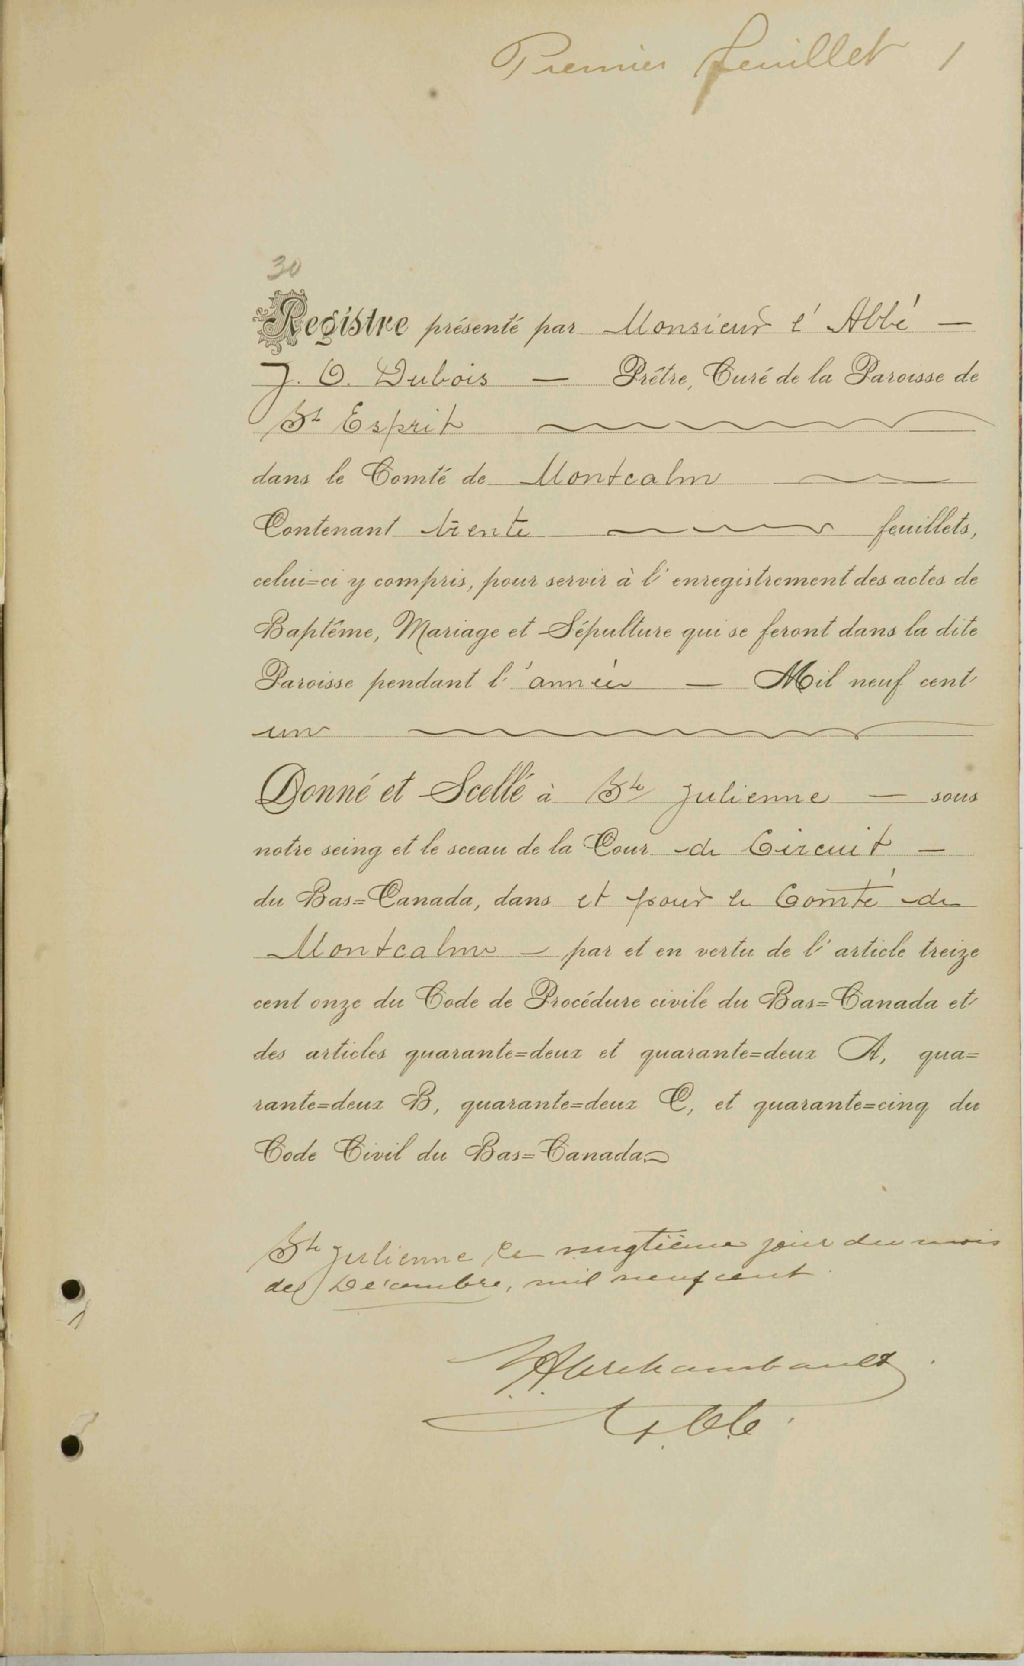 Premier feuillet 1
30
Registre présenté par Monsieur l'Abbé —
J. O. Dubois — Prêtre, Curé de la Paroisse de
St Esprit
dans le Comté de Montcalm
Contenant trente feuillets,
celui=ci y compris, pour servir à l'enregistrement des actes de
Baptême, Mariage et Sépulture qui se feront dans la dite
Paroisse pendant l'année — Mil neuf cent
un
Donné et Scellé à Ste Julienne — sous
notre seing et le sceau de la Cour de Circuit —
du Bas=Canada, dans et pour le Comté de
Montcalm — par et en vertu de l'article treize
cent onze du Code de Procédure civile du Bas=Canada et
des articles quarante=deux et quarante=deux A, qua=
rante=deux B, quarante=deux C, et quarante=cinq du
Code Civil du Bas=Canada
Ste Julienne le vingtième jour du mois
de Décembre, mil neuf cent
Archambault
1